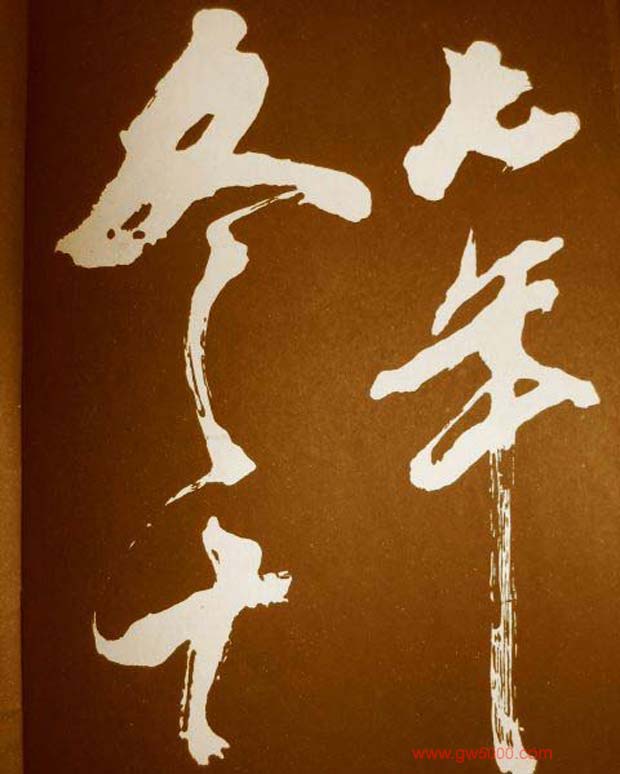 七年
冬十
www.gw5000.com